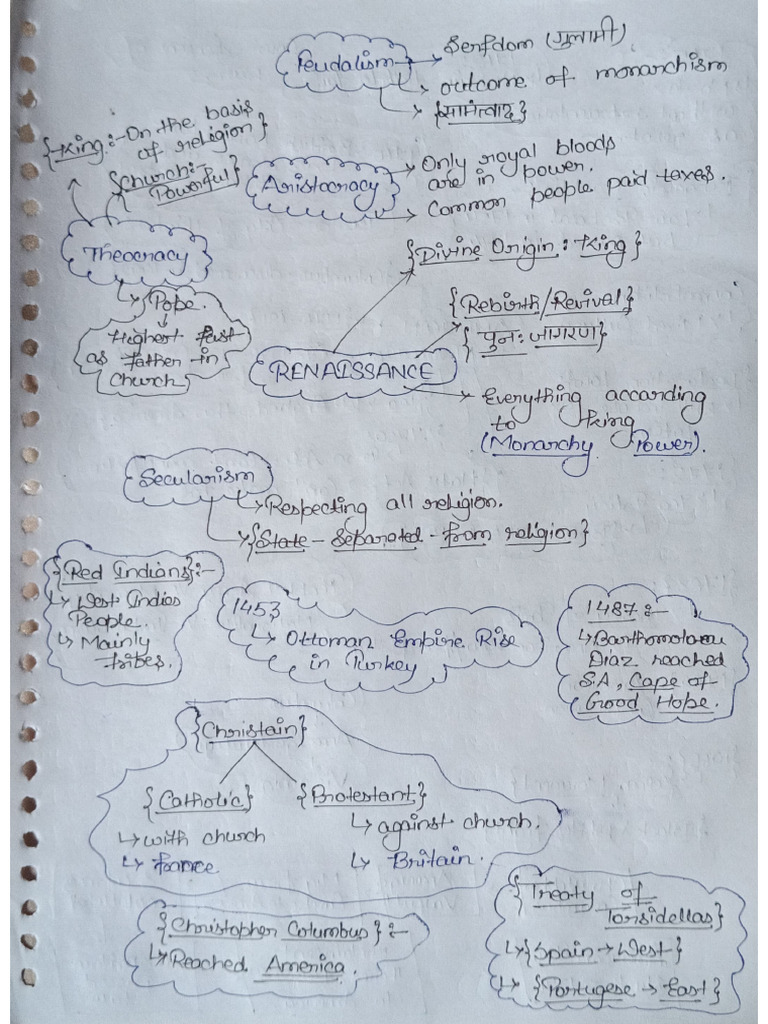 Feudalism
Serfdom (गुलामी)
outcome of monarchism
{सामंतवाद}
{King:- On the basis
of religion}
Church:-
Powerful}
Aristocracy
Only royal bloods
are in power.
Common people paid taxes.
Theocracy
{Divine Origin: King}
Pope.
Highest Post
as Father in
Church
{Rebirth/Revival}
{पुनः जागरण}
RENAISSANCE
Everything according
to King
(Monarchy Power).
Secularism
Respecting all religion.
{State - Separated - from religion}
{Red Indians}:-
West Indies
People.
Mainly
Tribes.
1453
Ottoman Empire Rise
in Turkey
1487:-
Diaz reached
S.A, Cape of
Good Hope.
{Christain}
{Catholic}
{Protestant}
with church
against church.
Britain.
{Christopher Columbus}:-
Reached America.
{Treaty of
Torsidellas}
{Spain → West}
{Portugese → East}